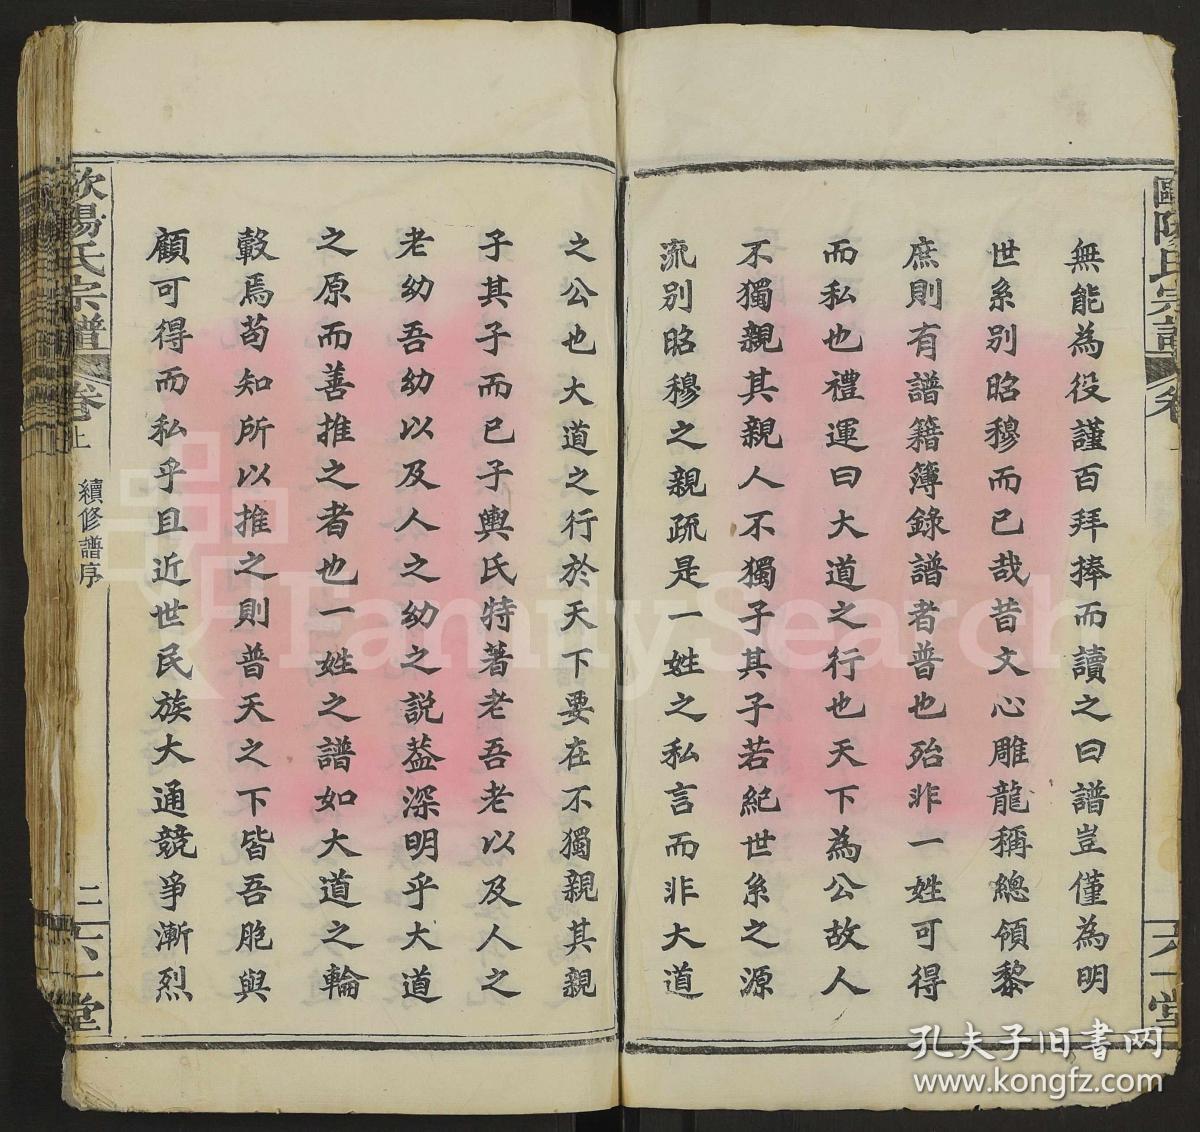 無能為役謹百拜捧而讀之曰譜豈僅為明
世系別昭穆而已哉昔文心雕龍稱總領黎
庶則有譜籍簿錄譜者普也殆非一姓可得
而私也禮運曰大道之行也天下為公故人
不獨親其親人不獨子其子若紀世系之源
流別昭穆之親疏是一姓之私言而非大道
之公也大道之行於天下要在不獨親其親
子其子而已子輿氏特著老吾老以及人之
老幼吾幼以及人之幼之説葢深明乎大道
之原而善推之者也一姓之譜如大道之輪
轂焉苟知所以推之則普天之下皆吾胞與
顧可得而私乎且近世民族大通競爭漸烈
歐陽氏宗譜
卷上
續修譜序
三
六一堂
歐陽氏宗譜
六一堂
FamilySearch
孔夫子旧书网
www.kongfz.com